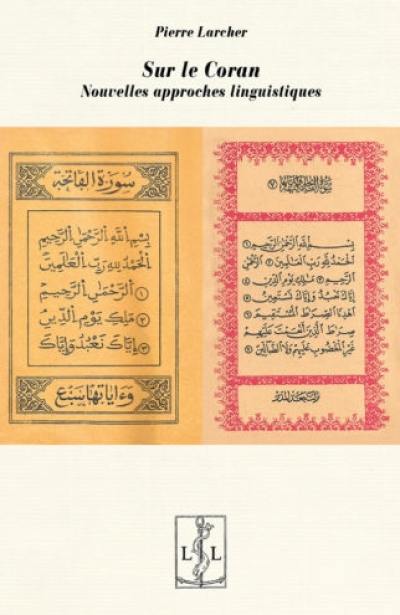 Pierre Larcher
Sur le Coran
Nouvelles approches linguistiques
سورة الفاتحة
بِسْمِ اللَّهِ الرَّحْمَٰنِ الرَّحِيمِ
الْحَمْدُ لِلَّهِ رَبِّ الْعَالَمِينَ
١ الرَّحْمَٰنِ الرَّحِيمِ
٢ مَلِكِ يَوْمِ الدِّينِ
٣ إِيَّاكَ نَعْبُدُ وَإِيَّاكَ
وءاياتها سبع
بِسْمِ اللَّهِ الرَّحْمَٰنِ الرَّحِيمِ ١
الْحَمْدُ لِلَّهِ رَبِّ الْعَالَمِينَ ٢ الرَّحْمَٰنِ
الرَّحِيمِ ٣ مَالِكِ يَوْمِ الدِّينِ ٤
إِيَّاكَ نَعْبُدُ وَإِيَّاكَ نَسْتَعِينُ ٥
اهْدِنَا الصِّرَاطَ الْمُسْتَقِيمَ ٦
صِرَاطَ الَّذِينَ أَنْعَمْتَ عَلَيْهِمْ
غَيْرِ الْمَغْضُوبِ عَلَيْهِمْ وَلَا الضَّالِّينَ ٧
L L